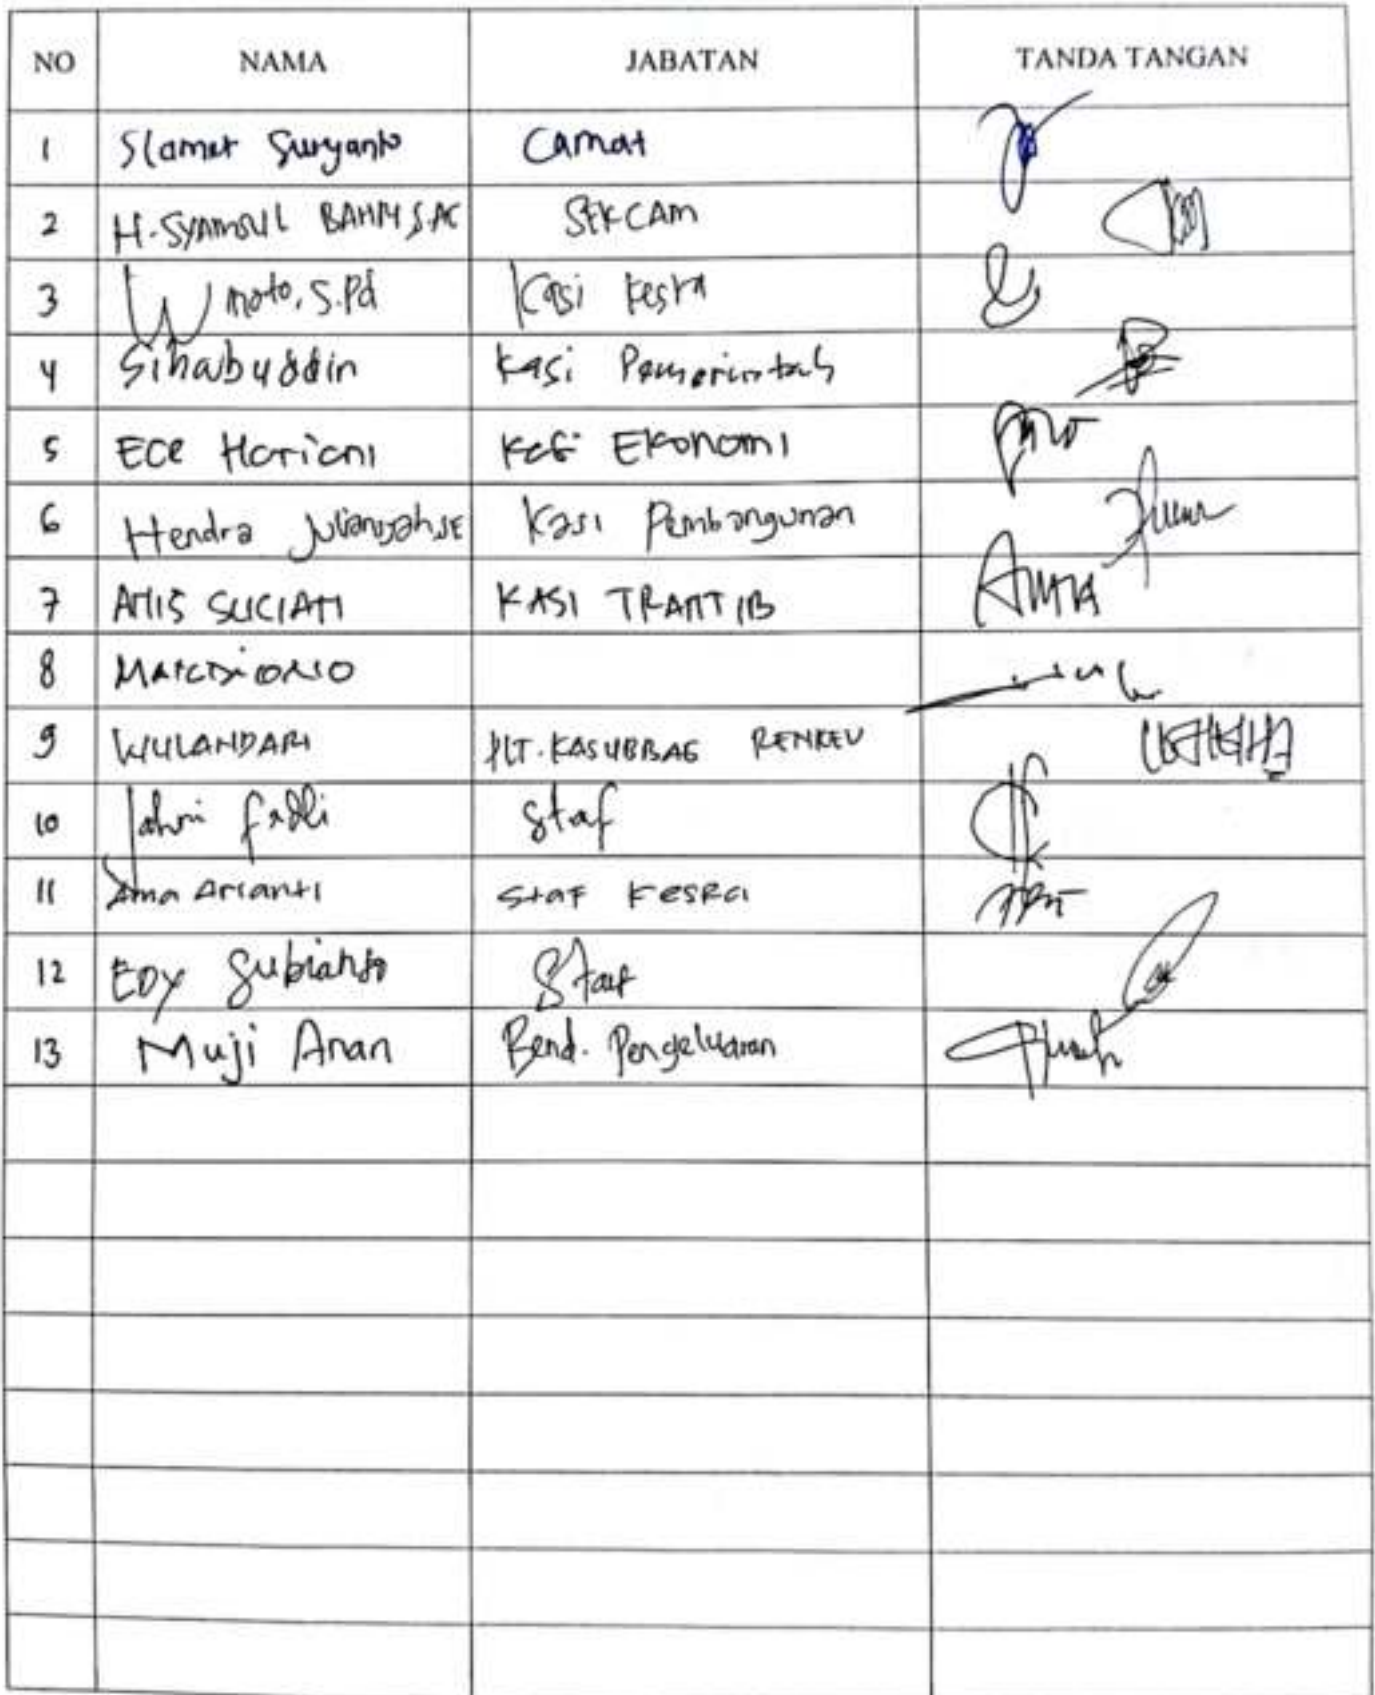 NO NAMA JABATAN TANDA TANGAN
1 Slamet Suryanto Camat
2 H. SYAMSUL SEKCAM
3 S.Pd Kasi Kesra
4 Sihabuddin Kasi Pemerintah
5 Ece Hariani Kasi EKonomi
6 Hendra Juliansyah, SE Kasi Pembangunan
7 ANIS SUCIATI KASI TRANTIB
8
9 WULANDARI PLT. KASUBBAG RENKEU
10 Fadli Staf
11 Arianti Staf KesRa
12 EDY Subianto Staf
13 Muji Anan Bend. Pengeluaran